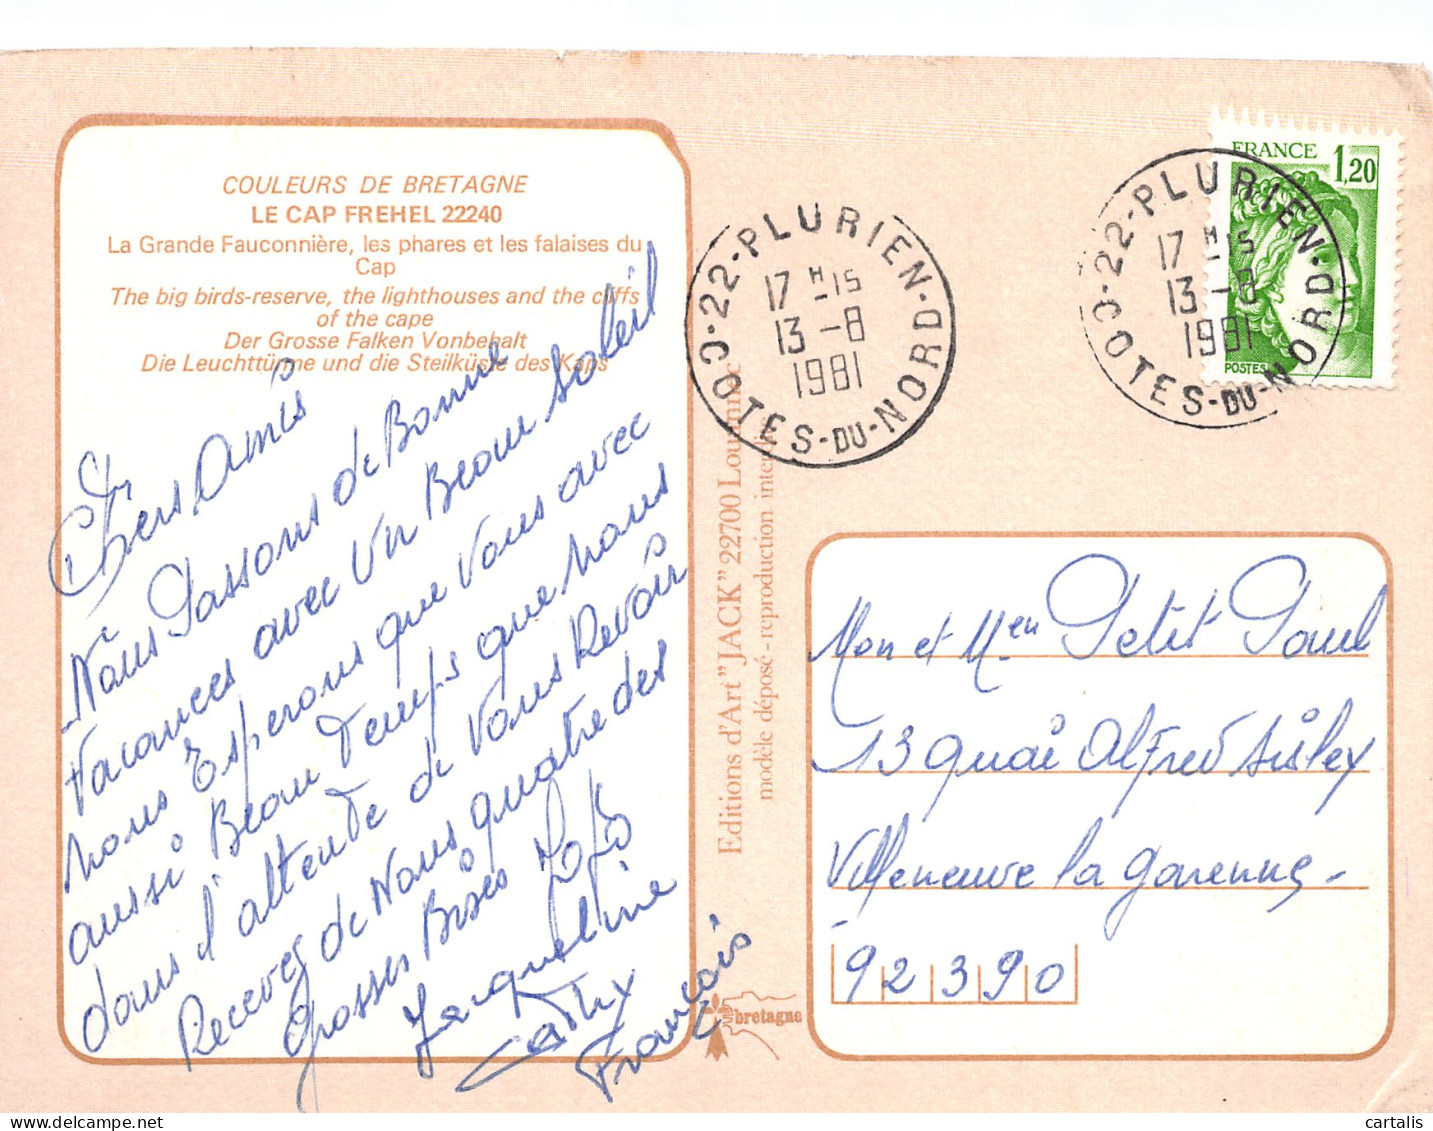 COULEURS DE BRETAGNE
LE CAP FREHEL 22240
La Grande Fauconnière, les phares et les falaises du
Cap
The big birds-reserve, the lighthouses and the cliffs
of the cape
Der Grosse Falken Vonbehalt
Die Leuchttürme und die Steilküste des Kaps
Chers Amis
Nous Passons de Bonne
Vacances avec Un Beau Soleil
nous Esperons que Vous avec
aussi Beau Temps que nous
dans l'attente de Vous Revoir
Recevez de Nous quatre des
Grosses Bises
Jacqueline
Cathy
François
Editions d'Art "JACK" 22700 Louannec
modèle déposé - reproduction
bretagne
22-PLURIEN-COTES-DU-NORD
17 H 15
13-8
1981
22-PLURIEN-COTES-DU-NORD
17 H 15
13-8
1981
FRANCE 1,20
POSTES
Mon et Men Petit Paul
13 quai Alfred Sisley
Villeneuve la garenne -
92390
cartalis